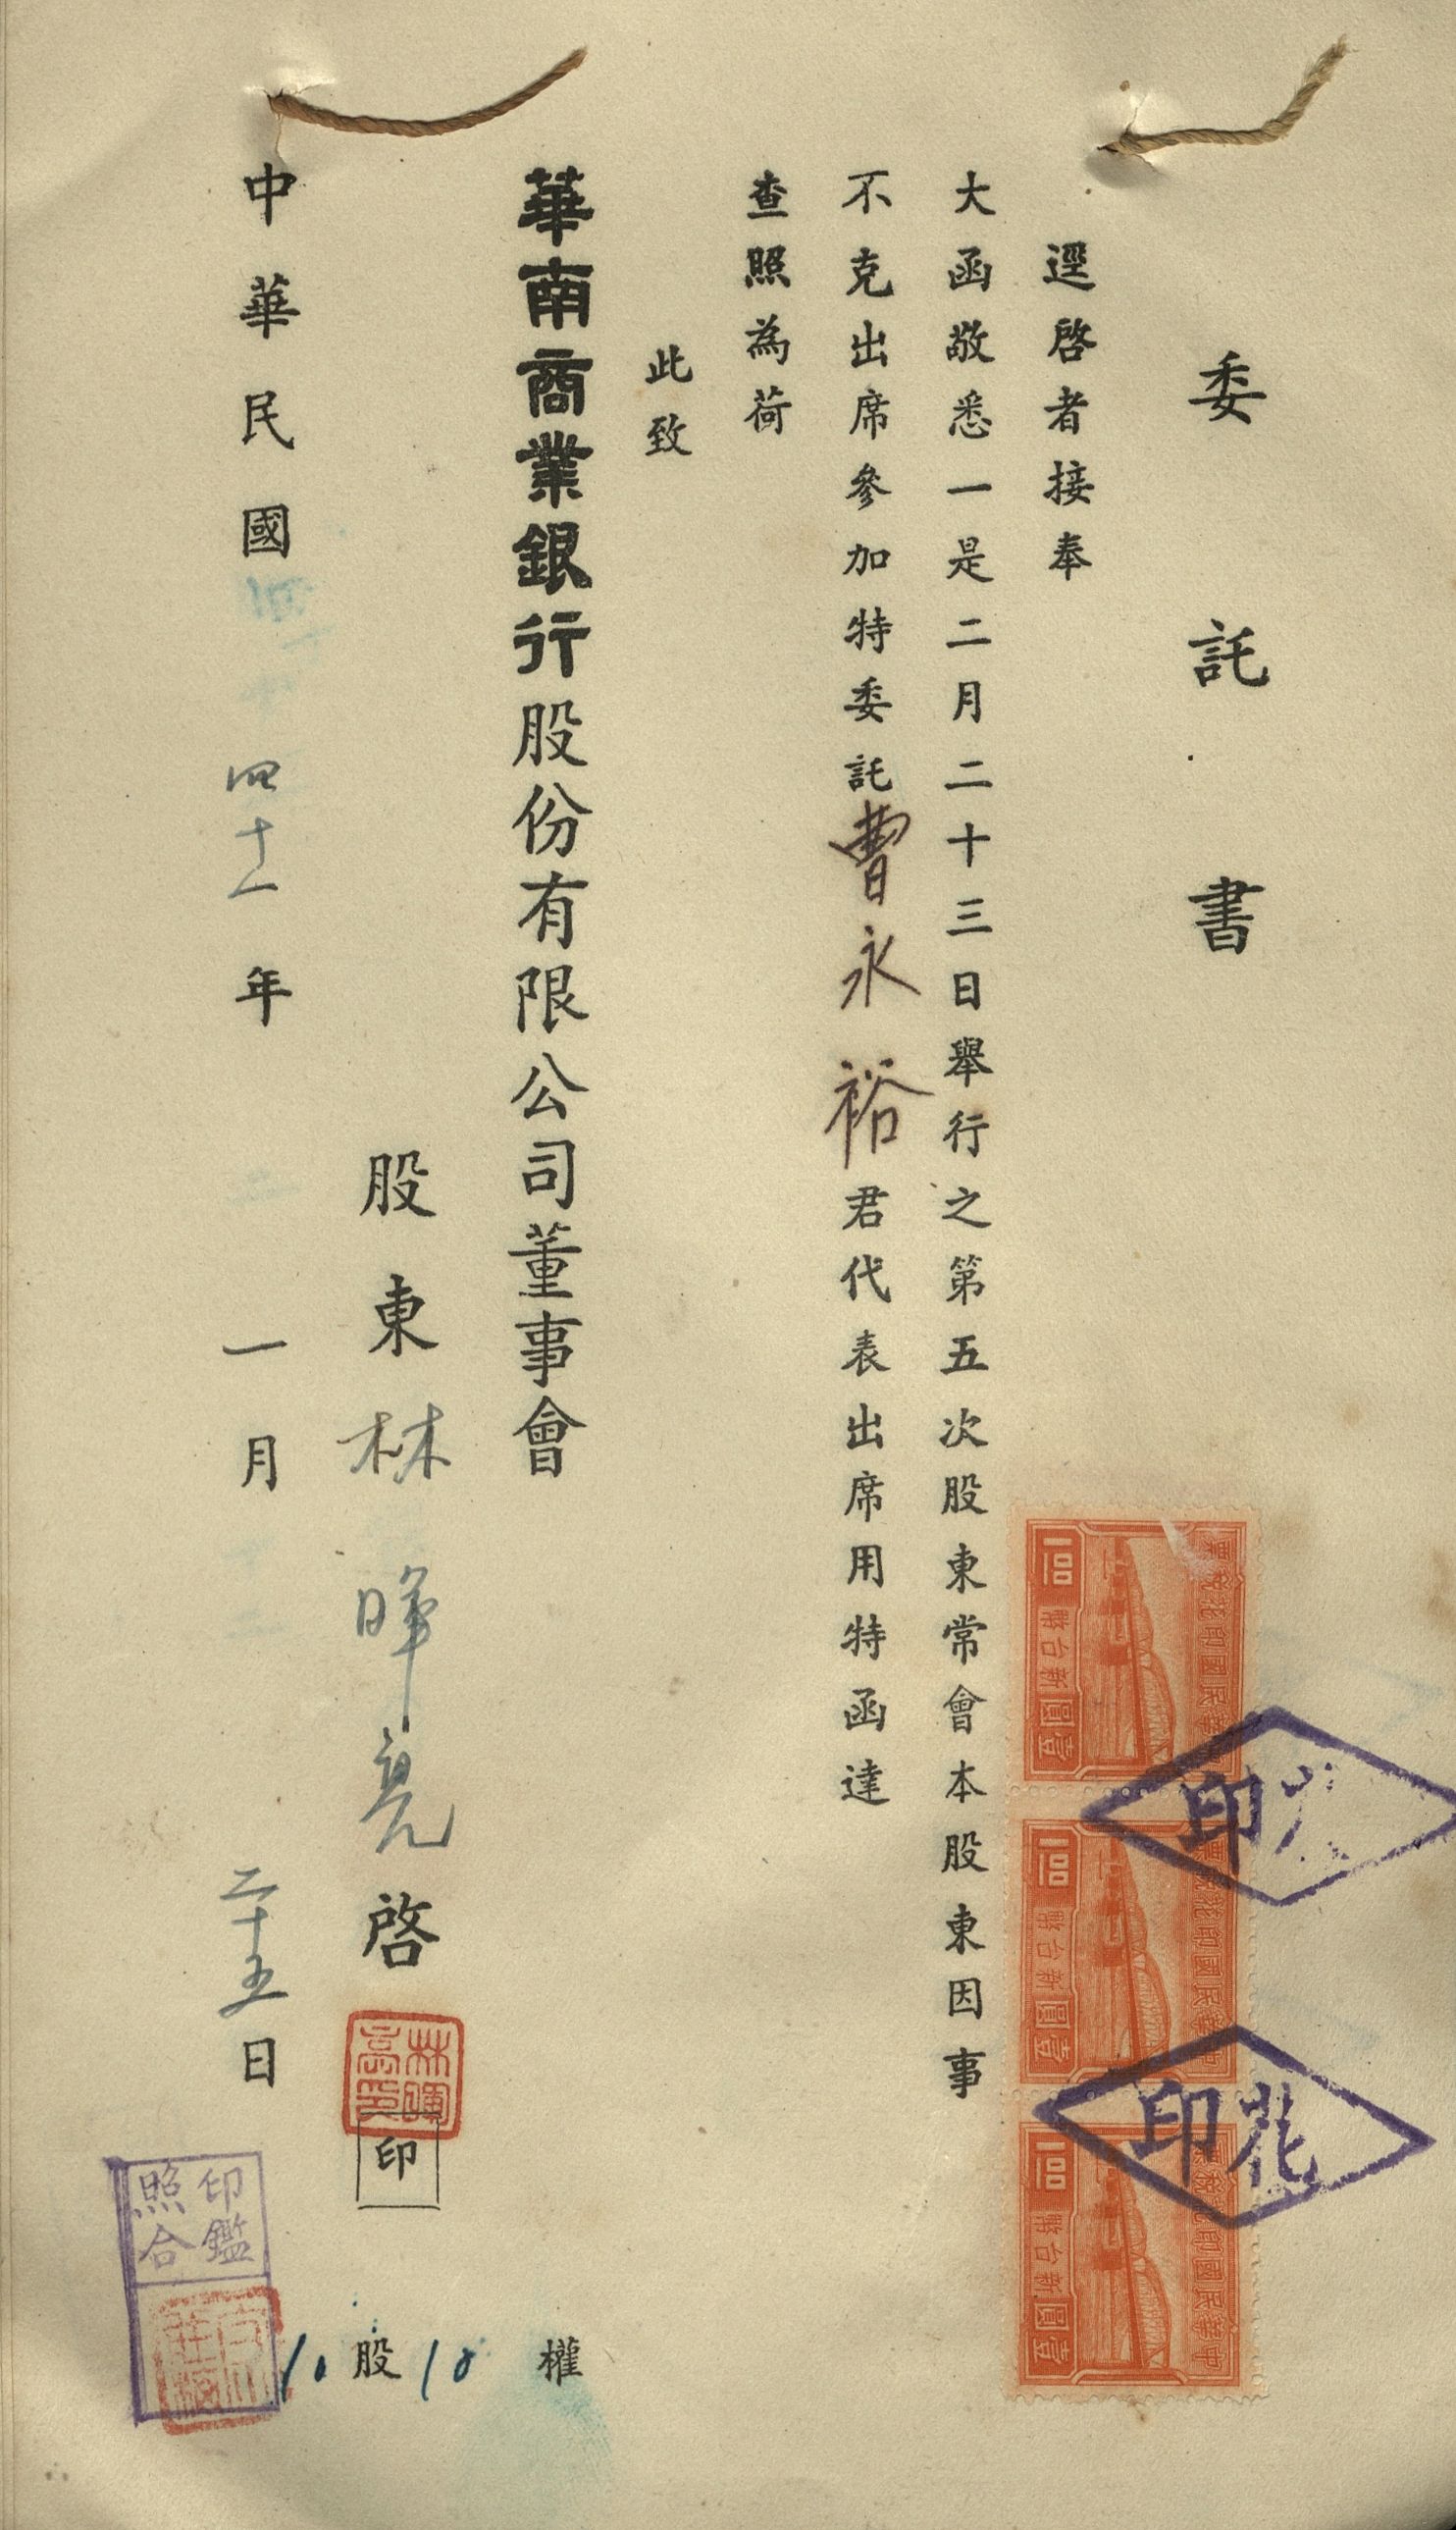 委託書
逕啓者接奉
大函敬悉一是二月二十三日舉行之第五次股東常會本股東因事
不克出席參加特委託曹永裕君代表出席用特函達
查照為荷
此致
華南商業銀行股份有限公司董事會
股東林暉亮啓
印
中華民國四十一年一月二十五日
10股10權
印鑑
照合
中華民國印花稅票
1.00 新台幣 壹圓
中華民國印花稅票
1.00 新台幣 壹圓
中華民國印花稅票
1.00 新台幣 壹圓
印花
印花